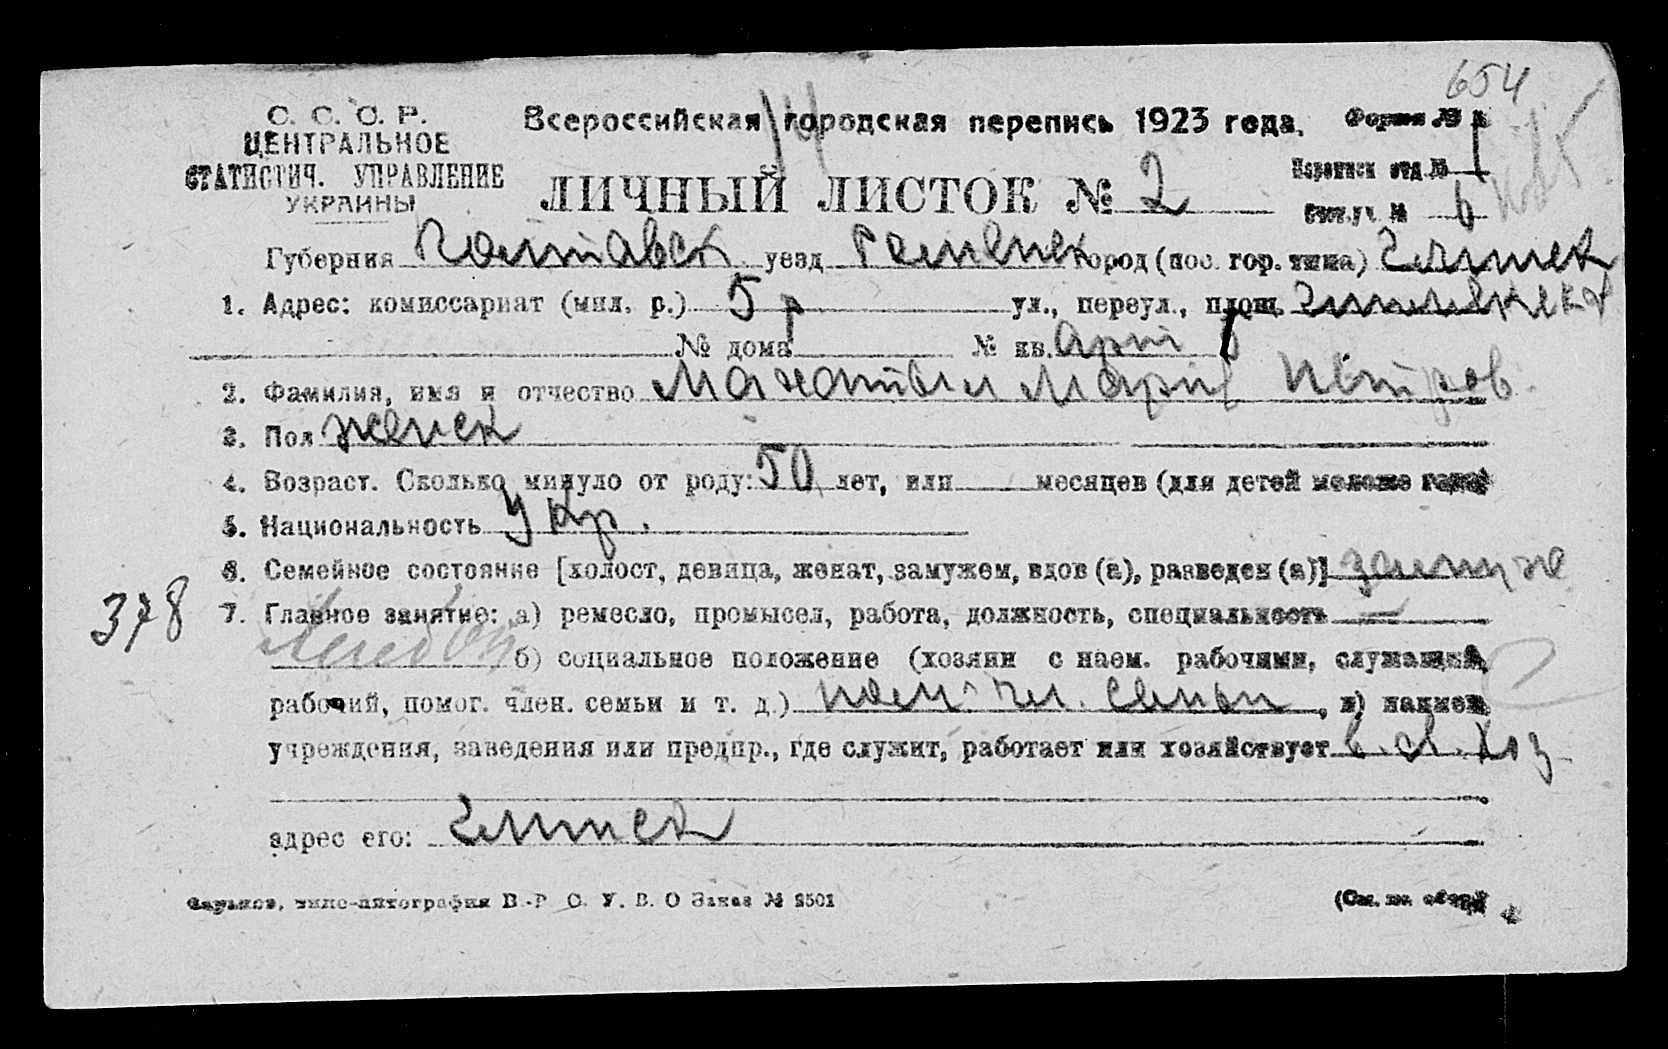 654
С. С. С. Р.
ЦЕНТРАЛЬНОЕ
СТАТИСТИЧ. УПРАВЛЕНИЕ
УКРАИНЫ
Всероссийская городская перепись 1923 года.
14
Форма № 1
ЛИЧНЫЙ ЛИСТОК № 2
Переписн отд. № 1
Счет. уч. № 6
Губерния Полтавск уезд Роменск город (пос. гор. типа) Глинск
1. Адрес: комиссариат (мил. р.) 5 р ул., переул., площ.
№ дома № кв.
2. Фамилия, имя и отчество Петров
3. Пол женск
4. Возраст. Сколько минуло от роду: 50 лет, или месяцев (для детей моложе года)
5. Национальность Укр.
6. Семейное состояние [холост, девица, женат, замужем, вдов (а), разведен (а)] замуже
378
7. Главное занятие: а) ремесло, промысел, работа, должность, специальность —
б) социальное положение (хозяин с наем. рабочими, служащий,
рабочий, помог. член. семьи и т. д.) пом. чл. семьи, в) наимен.
учреждения, заведения или предпр., где служит, работает или хозяйствует в с. хоз
адрес его: Глинск
Харьков, типо-литография В.-Р. С. У. В. О Заказ № 2501
(См. на обор.)